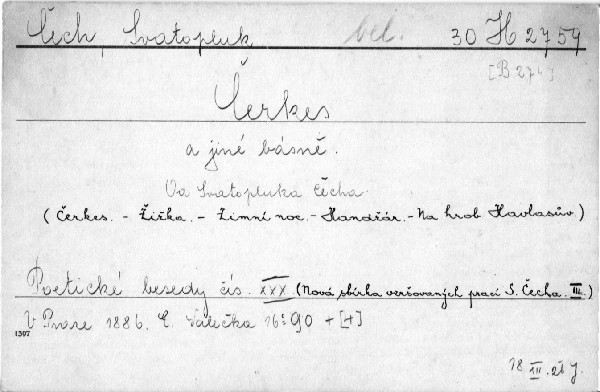 Čech, Svatopluk bel. 30 H 2759
[B 274]
Čerkes
a jiné básně.
Od Svatopluka Čecha.
(Čerkes. - Žižka. - Zimní noc. - Handžár. - Na hrob Havlasův.)
Poetické besedy čís. XXX (Nová sbírka veršovaných prací S. Čecha. III.)
V Praze 1886. E. Valečka 16° 90 + [4]
1307
18 III. 21 J.